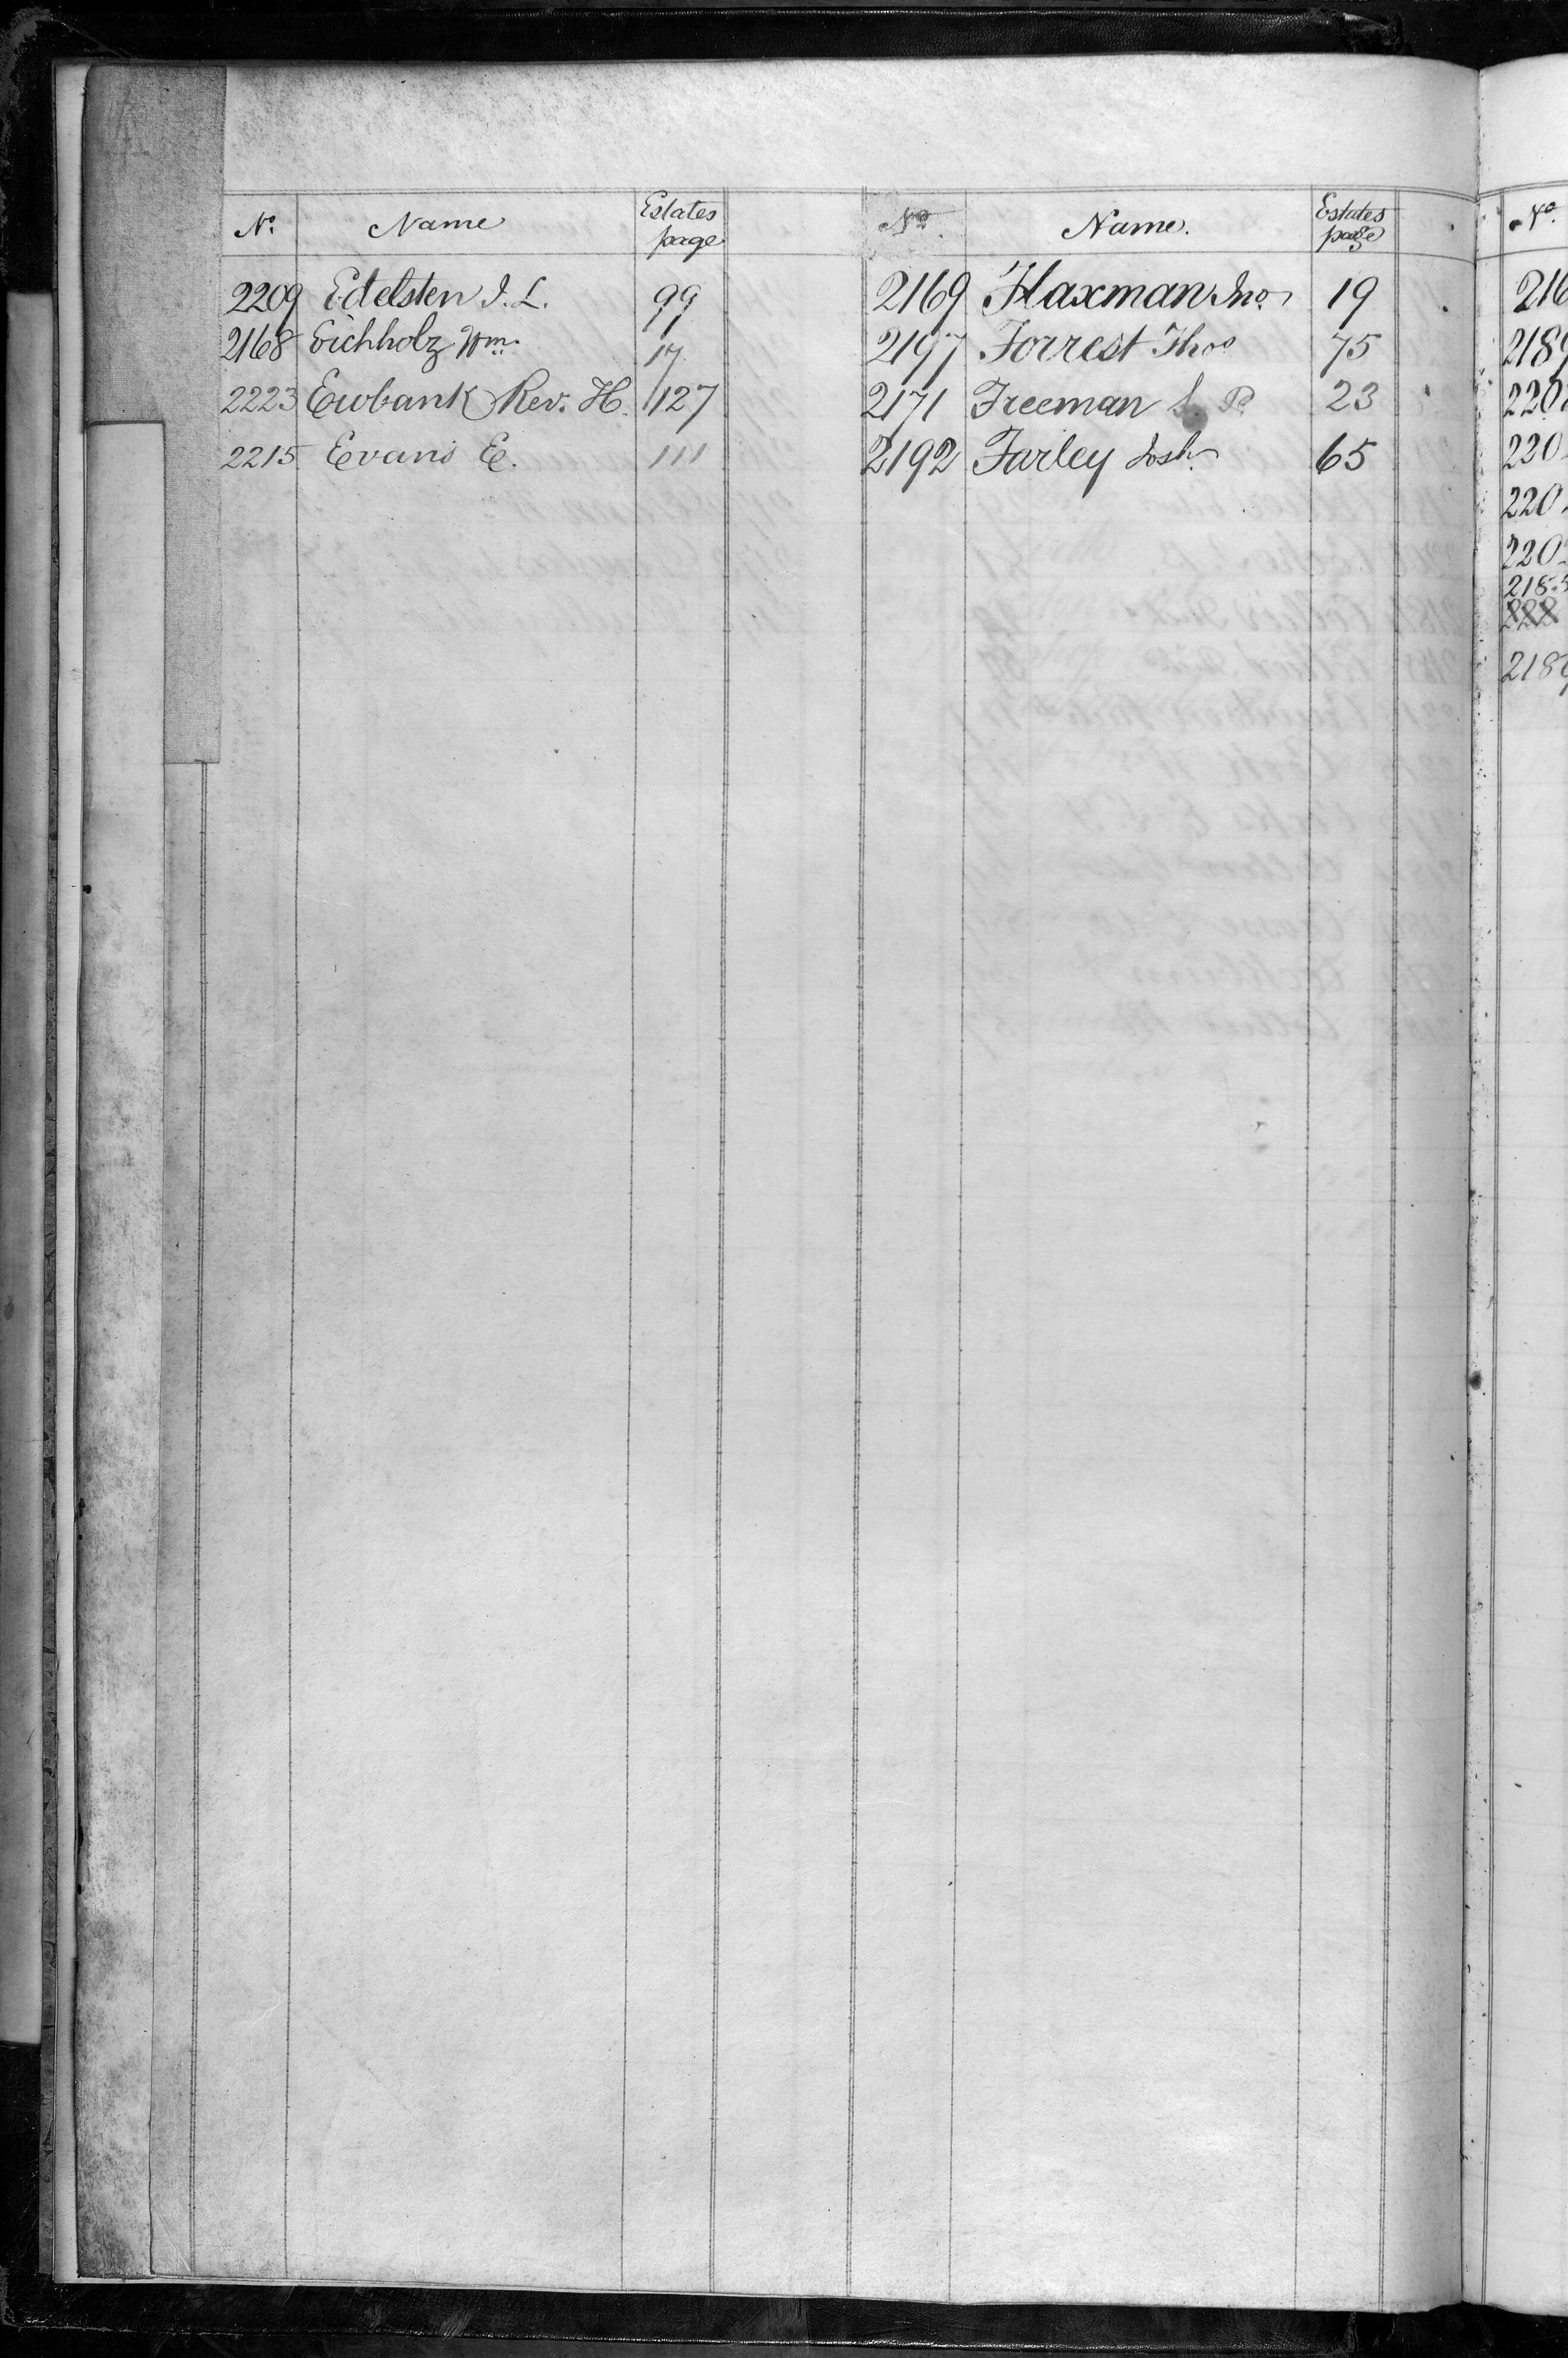 No. Name Estates page
2209 Edelsten J. L. 99
2168 Eichholz Wm. 17
2223 Ewbank Rev. H. 127
2215 Evans E. 111
No. Name. Estates page
2169 Flaxman Jno. 19
2197 Forrest Thos 75
2171 Freeman S. P. 23
2192 Farley Josh. 65
No.
216
2189
220
220
220
220
2185
218